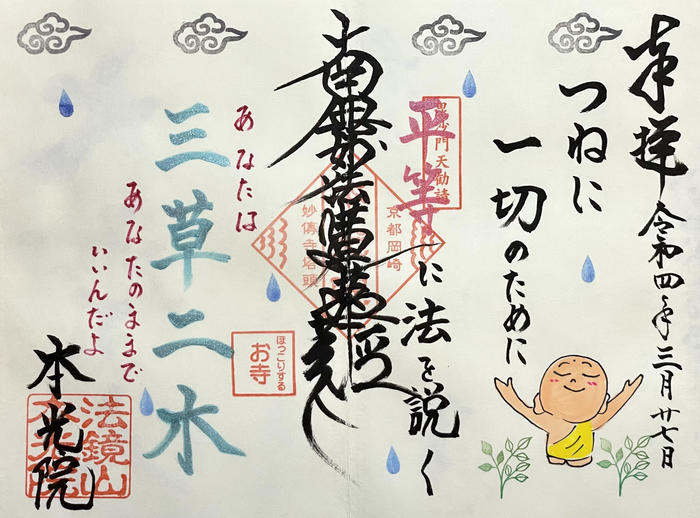 奉拝
令和四年三月廿七日
つねに
一切のために
平等に法を説く
毘沙門天勧請
京都岡崎
妙傳寺塔頭
南無妙法蓮華経
あなたは
三草二木
あなたのままで
いいんだよ
ほっこりする
お寺
本光院
法鏡山